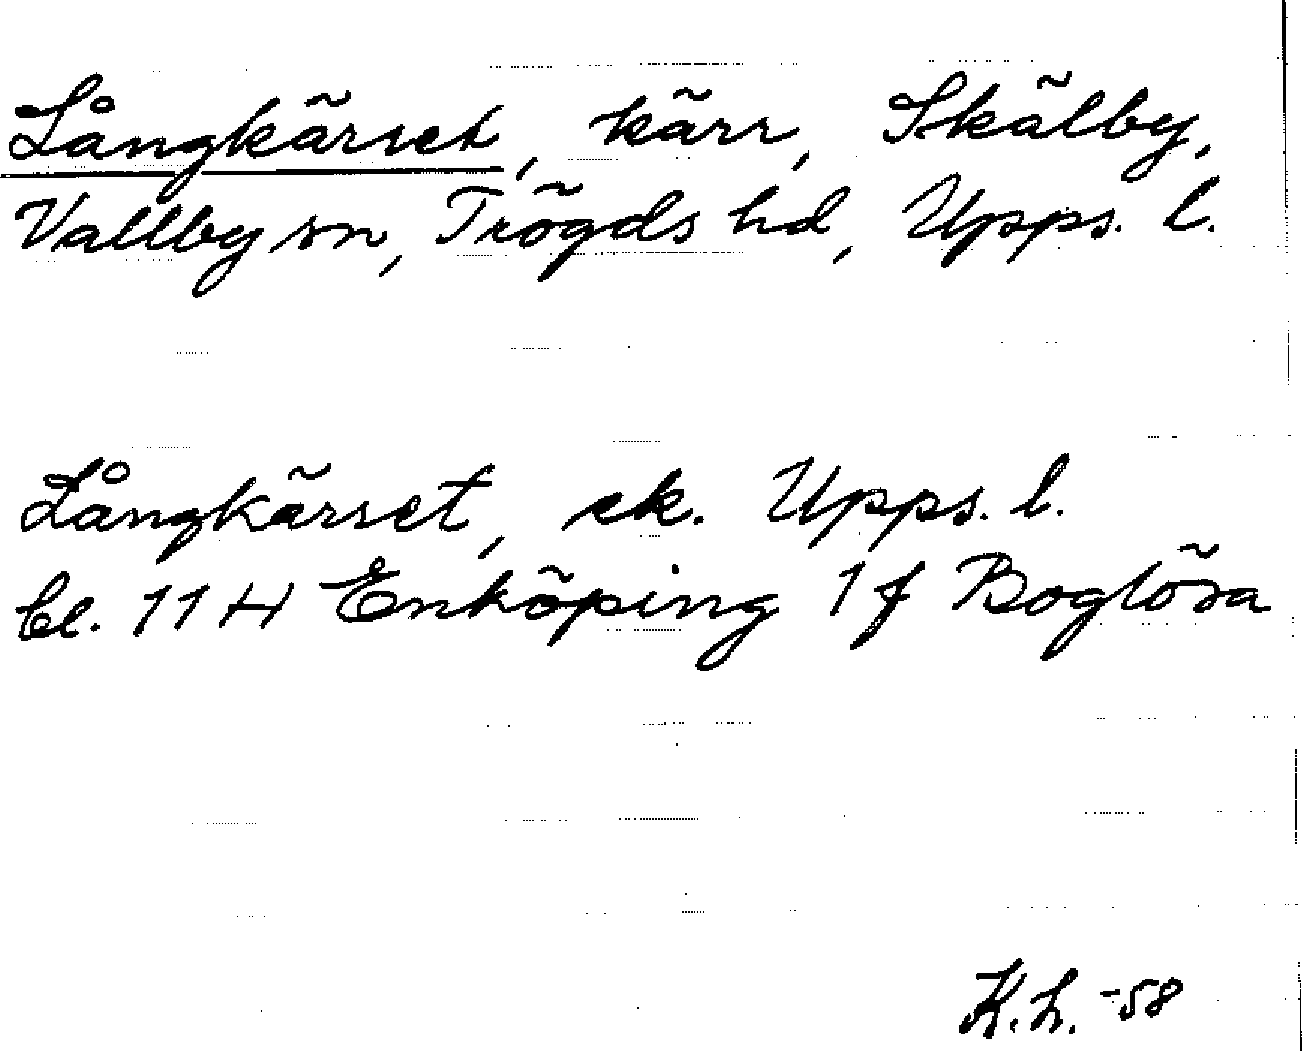 Långkärret, kärr, Skälby,
Vallby sn, Trögds hd, Upps. l.
Långkärret, ek. Upps. l.
bl. 11 H Enköping 1 f Boglösa
K. L. -58